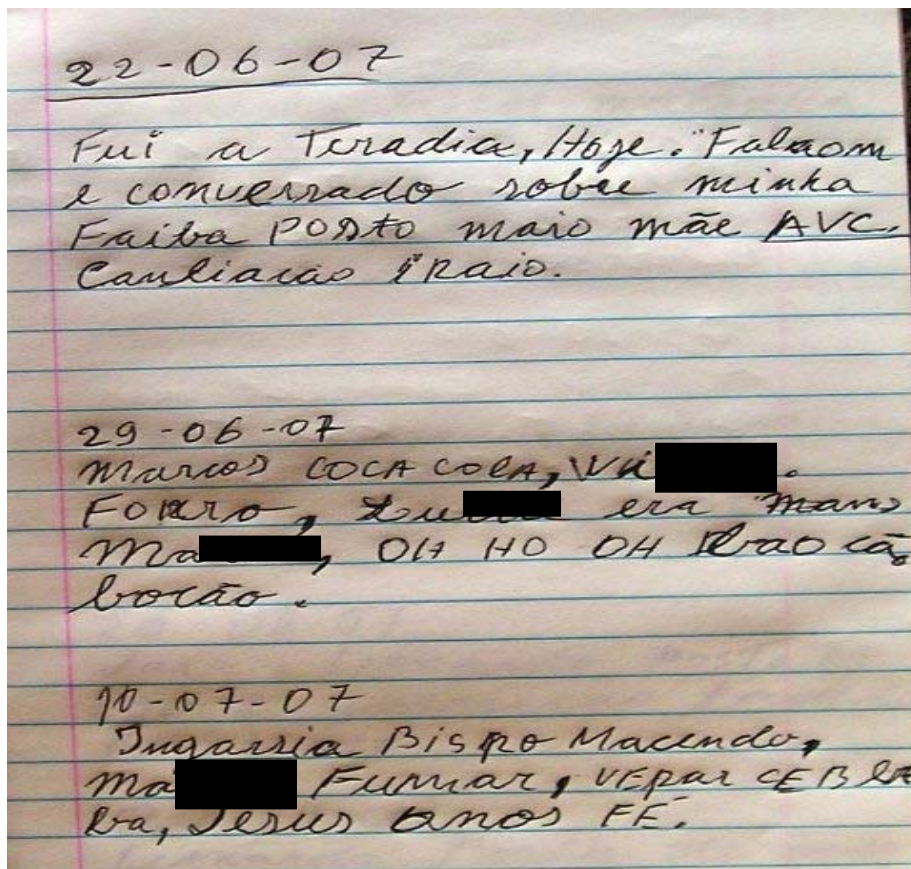 22-06-07
Fui a Teradia, Hoje. Falaom
e conversado sobre minha
Faiba POSto maio mãe AVC.
Canliacao
29-06-07
Marcos COCA COLA,
era mano
Ma, OH HO OH cã,
bocão.
10-07-07
Ingarria Bispo Macendo,
má Fumar, VEPar CEB
Jesus anos FÉ.